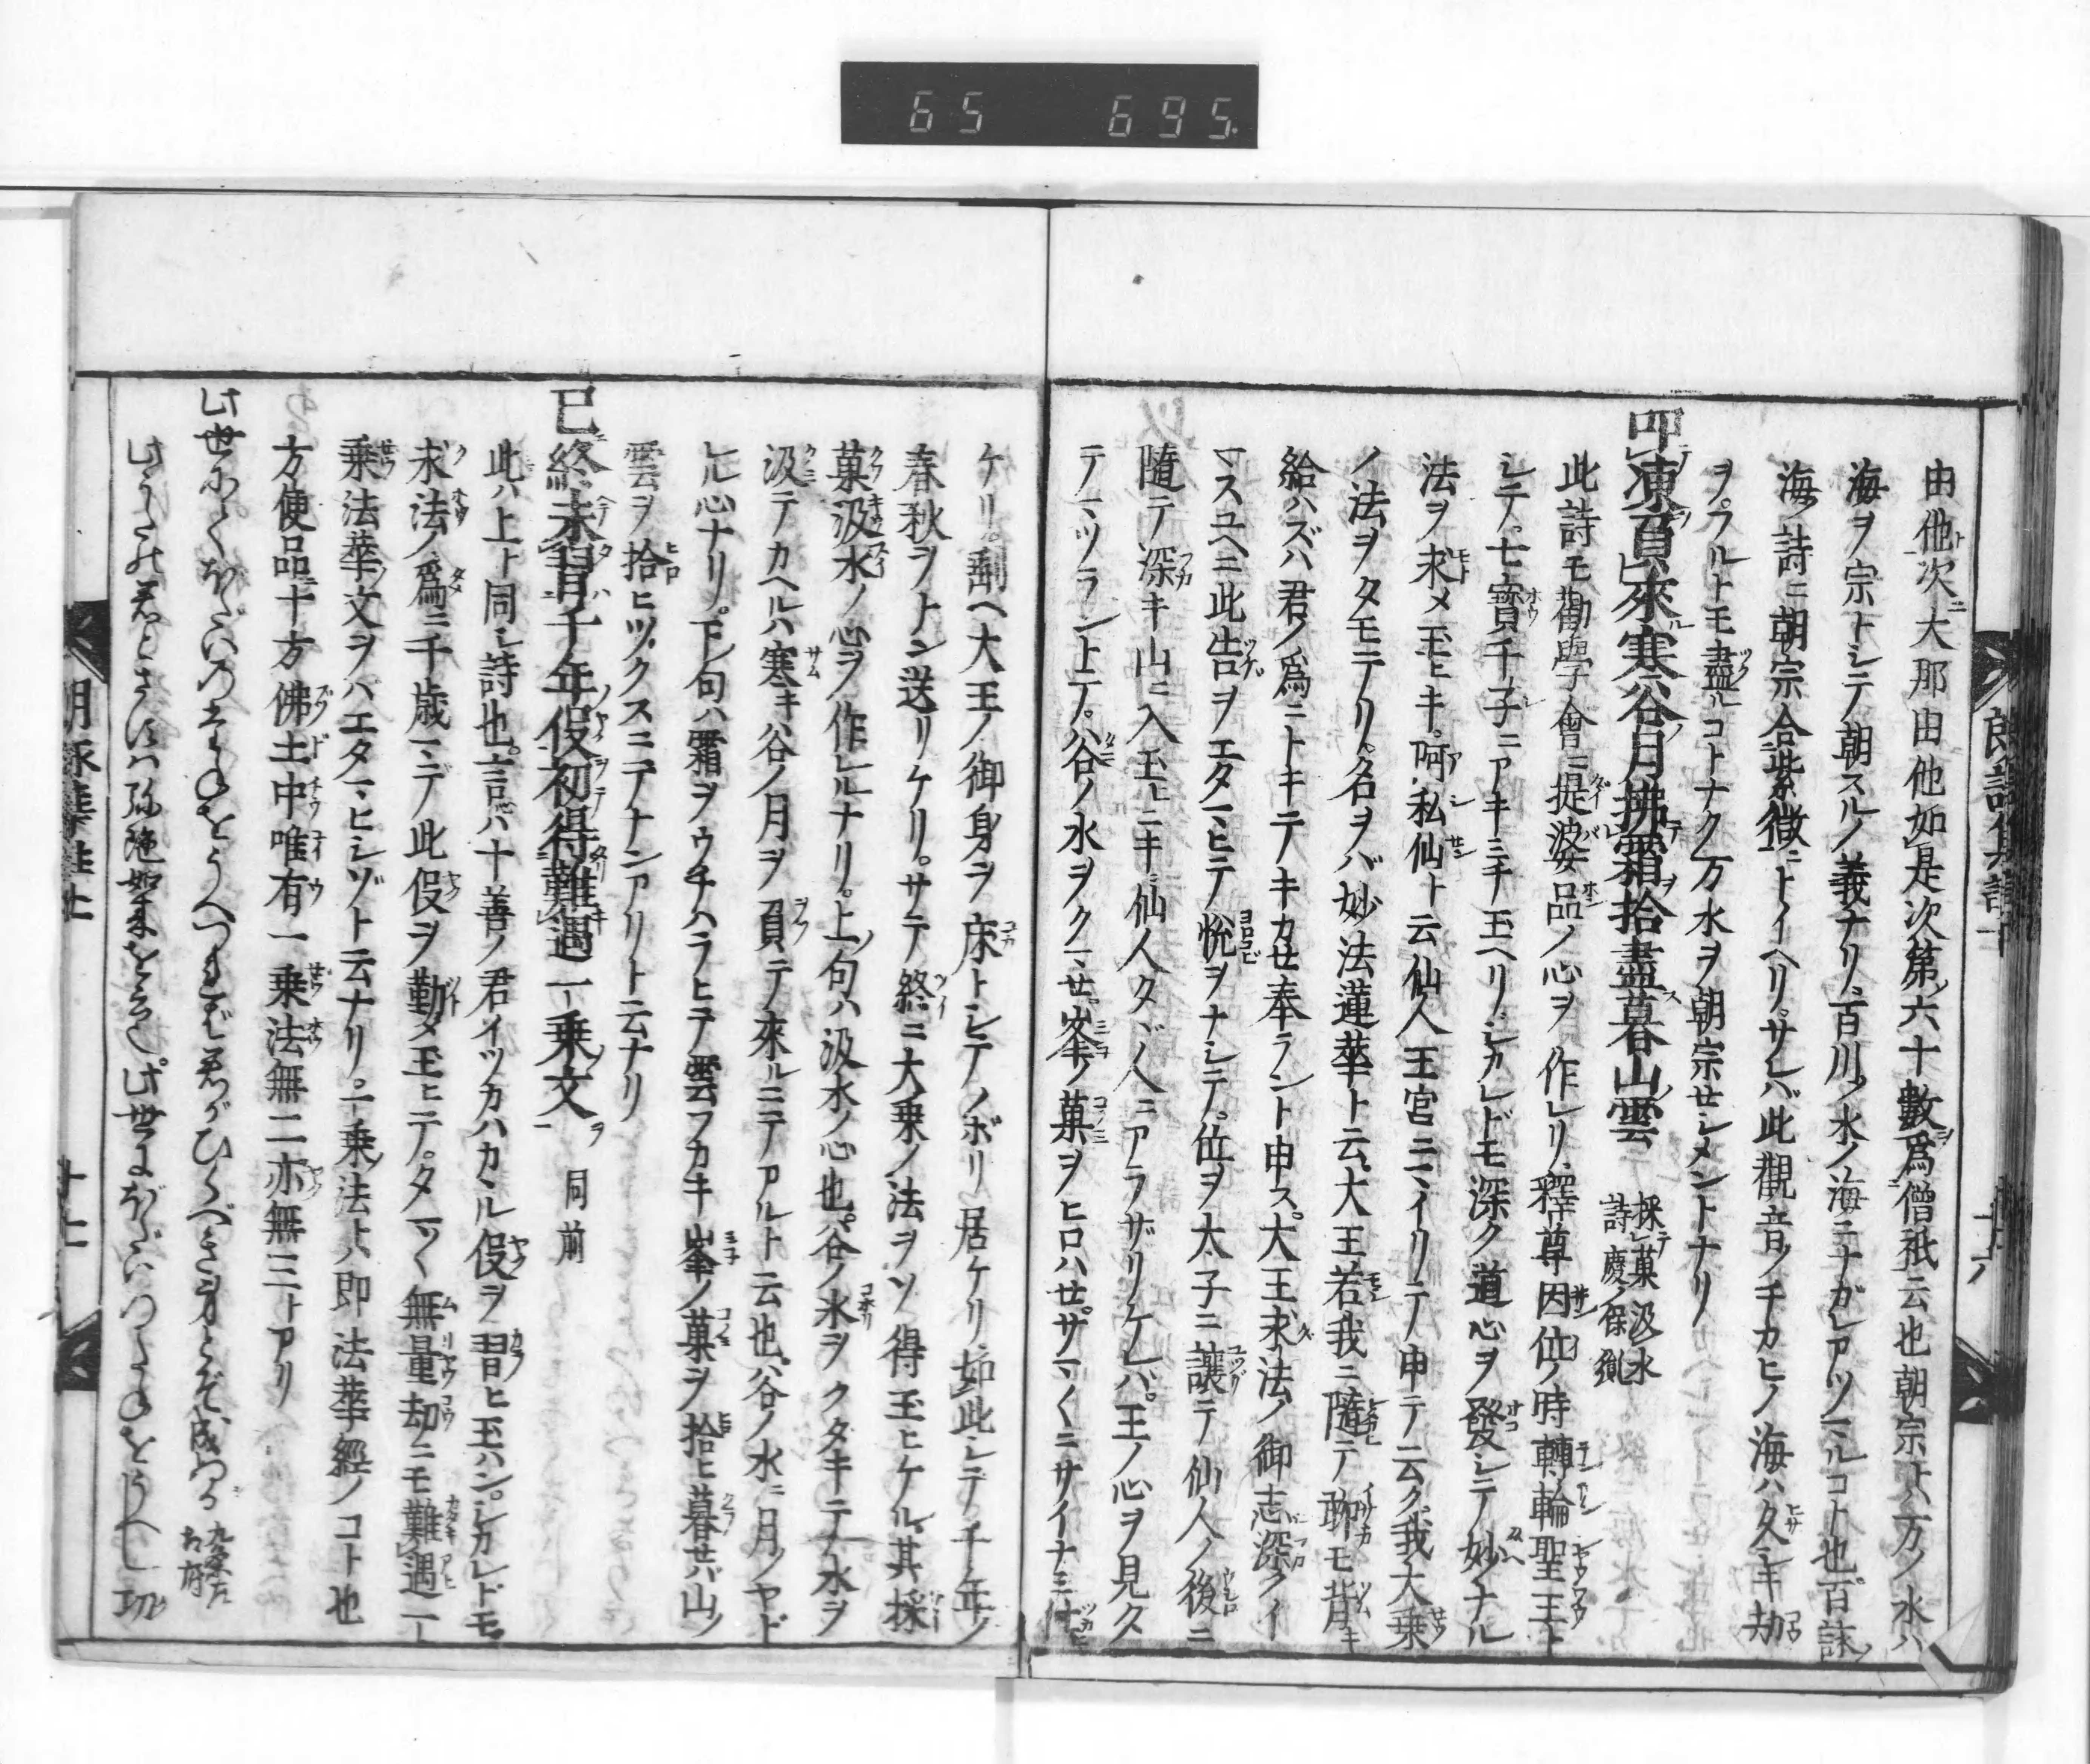 65 695
由他次ニ大那由他如是次第六十數ヲ爲僧祇云也朝宗トハ万ノ水ハ
海ヲ宗トシテ朝スルノ義ナリ百川ノ水ノ海ニナガレアツマルコト也百詠ノ
海ノ詩ニ朝宗合紫微ニトイヘリ。サレバ此觀音ノチカヒノ海ハ久シキ劫
ヲフルトモ盡ルコトナク万水ヲ朝宗セシメントナリ
叩凍負來寒谷月拂霜拾盡暮山雲 採菓汲水詩 慶保胤
此詩モ勸學會ニ提婆品ノ心ヲ作レリ釋尊因位ノ時轉輪聖王ト
シテ。七寶千子ニアキミチ玉ヘリシカレドモ深ク道心ヲ發シテ妙ナル
法ヲ求メ玉ヒキ。阿私仙ト云仙人王宮ニマイリテ申テ云ク我大乗
ノ法ヲタモテリ。名ヲバ妙法蓮華ト云大王若我ニ隨テ聊モ背キ
給ハズハ君ノ爲ニトキテキカセ奉ラント申ス。大王求法ノ御志深クイ
マスユヘニ此告ヲエタマヒテ悅ヲナシテ。位ヲ太子ニ讓テ仙人ノ後ニ
隨テ深キ山ニ入玉ヒニキ仙人タヾ人ニアラザリケレバ。王ノ心ヲ見ク
テマツラン上テ。谷ノ水ヲクマセ。峯ノ菓ヲヒロハセ。サマ〱ニサイナミ仕ヒ
ケリ。剩ヘ大王ノ御身ヲ床トシテノボリ居ケリ如此シテ千年ノ
春秋ヲトシ送リケリ。サテ終ニ大乗ノ法ヲソ得玉ヒケル其採
菓汲水ノ心ヲ作レルナリ。上ノ句ハ汲水ノ心也。谷ノ氷ヲクタキテ水ヲ
汲テカヘルハ寒キ谷ノ月ヲ負テ來ルニテアルト云也谷ノ水ニ月ノヤド
レル心ナリ。下ノ句ハ霜ヲウチハラヒテ雲フカキ峯ノ菓ヲ拾ヒ暮セバ山ノ
雲ヲ拾ヒツクスニテナンアリト云ナリ
已終未習千年役初得難遇一乗文 同前
此ハ上ト同シ詩也。言ハ十善ノ君イツカハカヽル役ヲ習ヒ玉ハン。シカレドモ
求法ノ爲ニ千歳マデノ此役ヲ勤メ玉ヒテ。タマ〱無量劫ニモ難遇一
乗法華ノ文ヲハエタマヒシゾト云ナリ。一乗ノ法トハ即法華經ノコト也
方便品ニ十方佛土中唯有一乗法無二亦無三トアリ